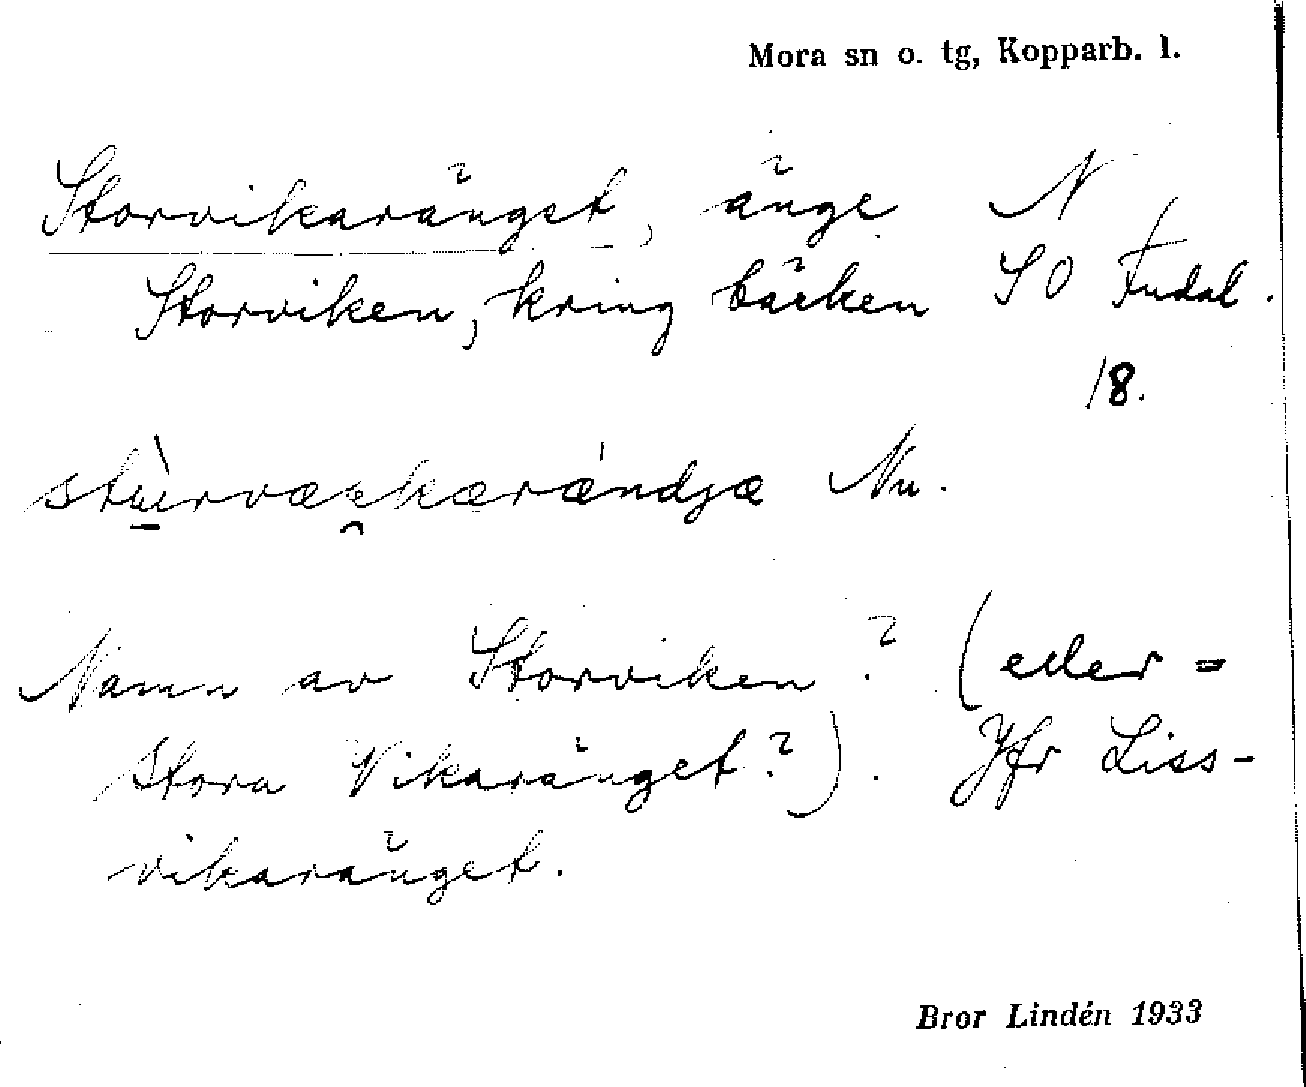 Mora sn o. tg, Kopparb. l.
Storvikaränget, änge N
Storviken, kring bäcken SO Fudal.
18.
stu̠̇rvæ̯kærǽndjæ Nu.
Namn av Storviken? (eller =
Stora Vikaränget?). Jfr Liss-
vikaränget.
Bror Lindén 1933